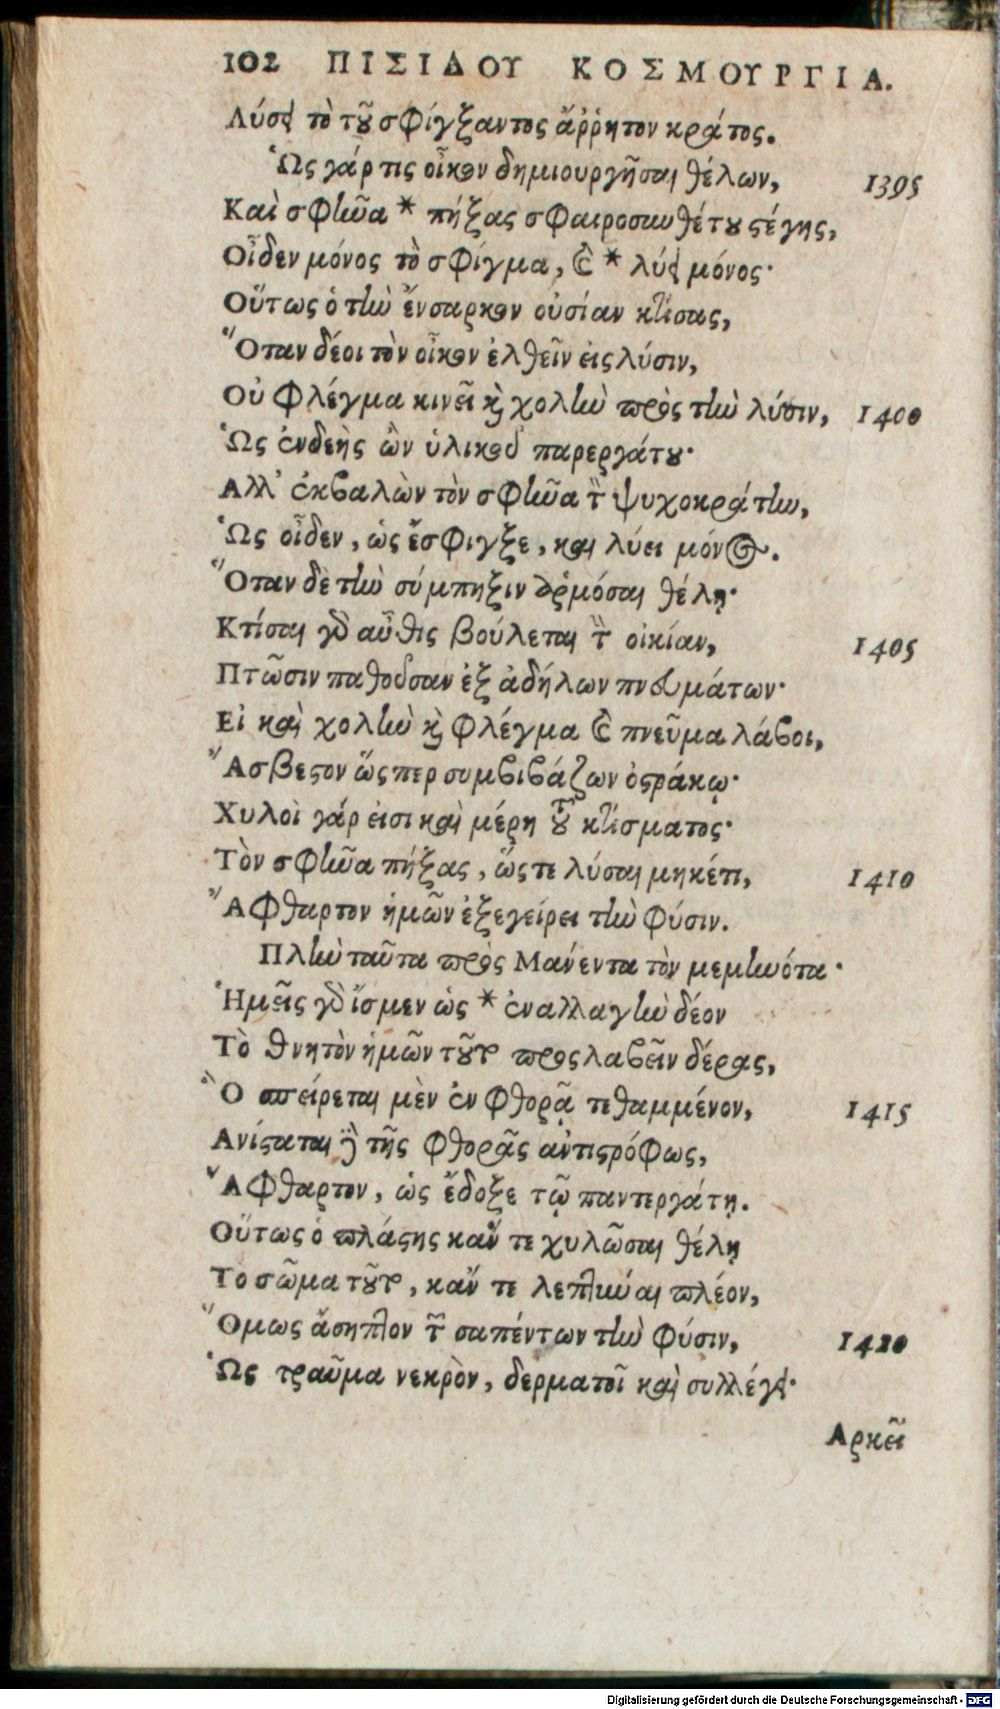 102 ΠΙΣΙΔΟΥ ΚΟΣΜΟΥΡΓΙΑ.
Λύσει τὸ τοῦ σφίγξαντος ἄῤῥητον κράτος.
Ὡς γάρ τις οἶκον δημιουργῆσαι θέλων, 1395
Καὶ σφηνῶα * πήξας σφαιροσυνθέτου στέγης,
Οἶδεν μόνος τὸ σφίγμα, καὶ * λύει μόνος·
Οὕτως ὁ τὴν ἔνσαρκον οὐσίαν κτίσας,
Ὅταν δέοι τὸν οἶκον ἐλθεῖν εἰς λύσιν,
Οὐ φλέγμα κινεῖ καὶ χολὴν πρὸς τὴν λύσιν, 1400
Ὡς ἐνδεὴς ὢν ὑλικοῦ παρεργάτου·
Ἀλλ' ἐκβαλὼν τὸν σφῆνα τὸν ψυχοκράτην,
Ὡς οἶδεν, ὡς ἔσφιγξε, καὶ λύει μόνος.
Ὅταν δὲ τὴν σύμπηξιν ἁρμόσαι θέλῃ·
Κτίσαι γὰρ αὖθις βούλεται τὴν οἰκίαν, 1405
Πτῶσιν παθοῦσαν ἐξ ἀδήλων πνευμάτων·
Εἰ καὶ χολὴν καὶ φλέγμα καὶ πνεῦμα λάβοι,
Ἄσβεστον ὥσπερ συμβιβάζων ὀστράκῳ·
Χυλοὶ γάρ εἰσι καὶ μέρη τοῦ κτίσματος·
Τὸν σφῆνα πήξας, ὥςτε λύσαι μηκέτι, 1410
Ἄφθαρτον ἡμῶν ἐξεγείρει τὴν φύσιν.
Πλὴν ταῦτα πρὸς Μανέντα τὸν μεμηνότα·
Ἡμεῖς γὰρ ἴσμεν ὡς * ἐναλλαγὴν δέον
Τὸ θνητὸν ἡμῶν τοῦτο προςλαβεῖν δέρας,
Ὃ σπείρεται μὲν ἐν φθορᾷ τεθαμμένον, 1415
Ἀνίσταται δὲ τῆς φθορᾶς ἀντιστρόφως,
Ἄφθαρτον, ὡς ἔδοξε τῷ παντεργάτῃ.
Οὕτως ὁ πλάστης κἄν τε χυλῶσαι θέλῃ
Τὸ σῶμα τοῦτο, κἄν τε λεπτῦναι πλέον,
Ὅμως ἄσηπτον τῶν σαπέντων τὴν φύσιν, 1420
Ὡς τραῦμα νεκρὸν, δερματοῖ καὶ συλλέγει·
Ἀρκεῖ
Digitalisierung gefördert durch die Deutsche Forschungsgemeinschaft - DFG